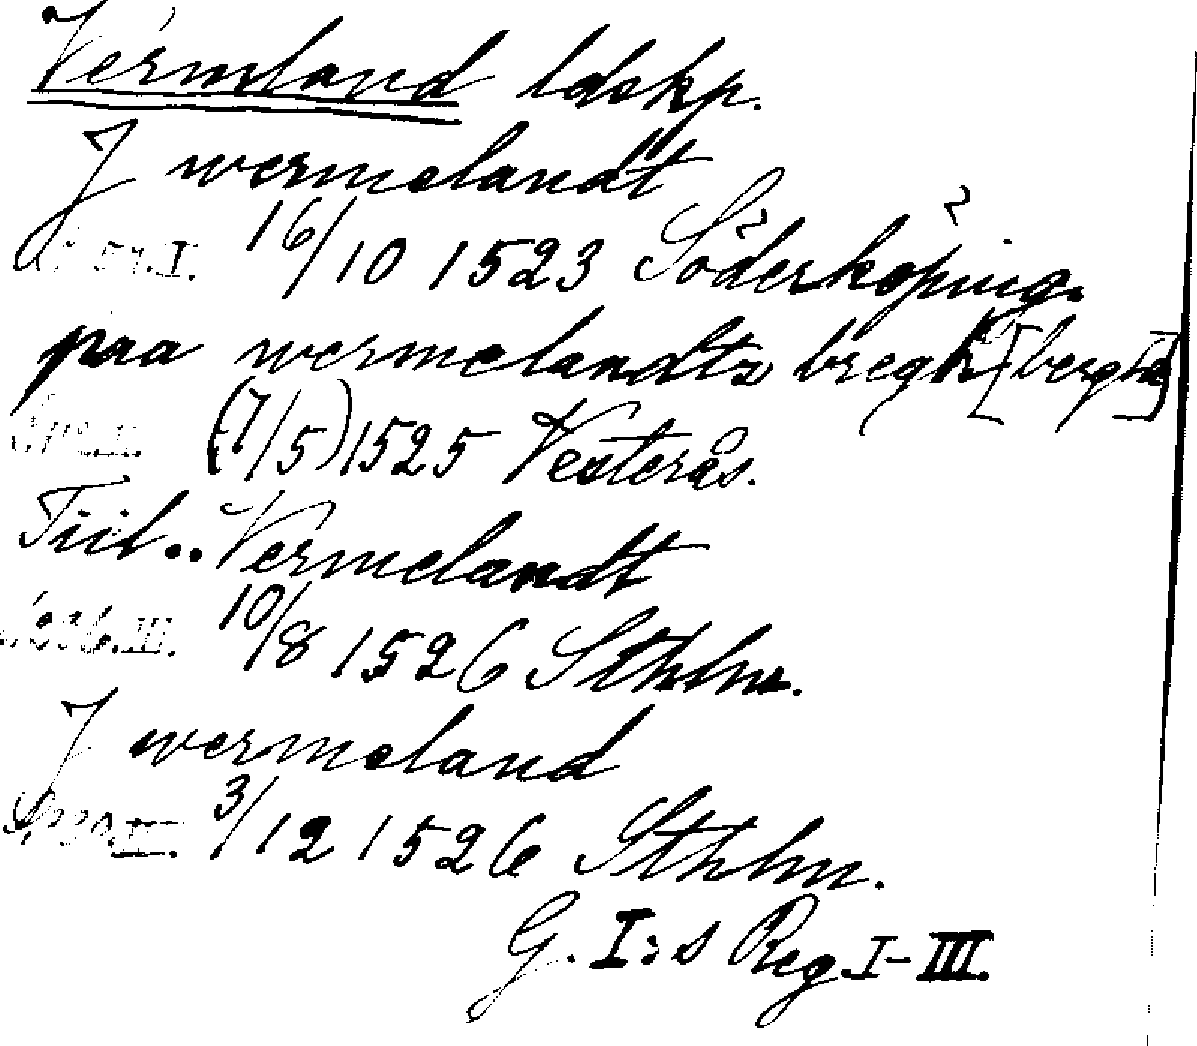 Vermland ldskp.
J wermelandt
I. 16/10 1523 Söderköping.
paa wermelandtz bregh [bergha]
(7/5) 1525 Vesterås.
Tiil.. Vermelandt
III. 10/8 1526 Sthlm.
J wermeland
3/12 1526 Sthlm.
G. I:s Reg. I-III.